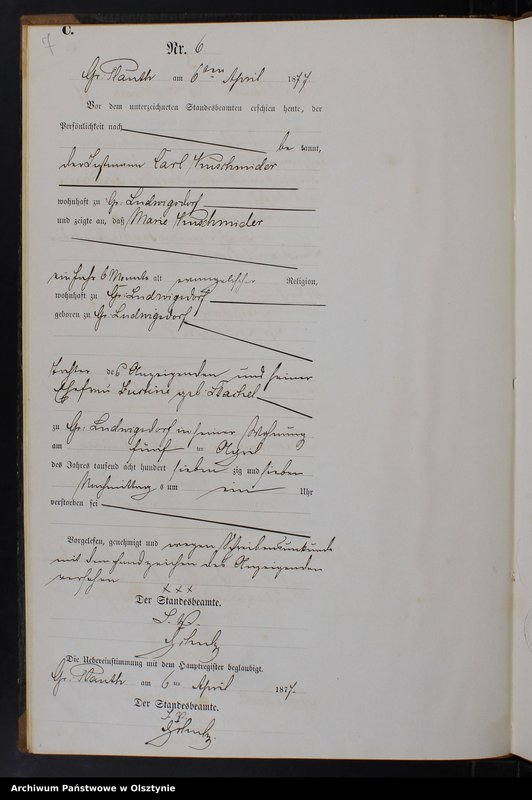 7
C.
Nr. 6
Gr. am 6ten April 1877.
Vor dem unterzeichneten Standesbeamten erschien heute, der
Persönlichkeit nach
be kannt,
der Instmann Carl
wohnhaft zu Gr. Ludwigsdorf
und zeigte an, daß Marie
ein Jahr 6 Monate alt evangelischer Religion,
wohnhaft zu Gr. Ludwigsdorf
geboren zu Gr. Ludwigsdorf
Tochter des Anzeigenden und seiner
Ehefrau geb.
zu Gr. Ludwigsdorf in seiner Wohnung
am fünf ten April
des Jahres tausend acht hundert sieben zig und sieben
Nachmittag s um ein Uhr
verstorben sei
Vorgelesen, genehmigt und wegen Schreibensunkunde
mit dem Handzeichen des Anzeigenden
versehen
x x x
Der Standesbeamte.
Die Uebereinstimmung mit dem Hauptregister beglaubigt.
Gr. am 6ten April 1877.
Der Standesbeamte.
Archiwum Państwowe w Olsztynie